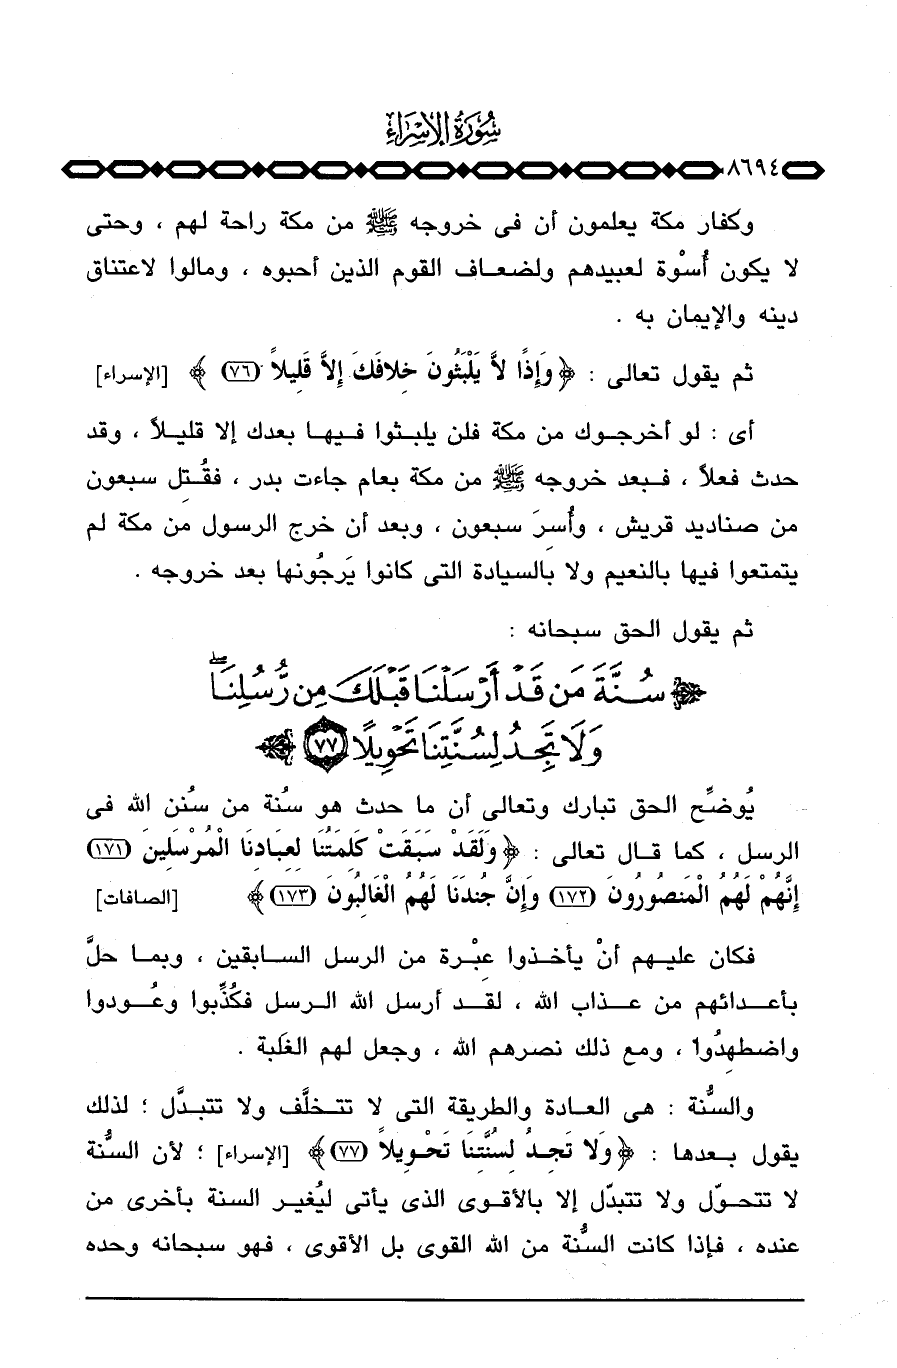 سُورَةُ الإِسْرَاءِ
٨٦٩٤
وكفار مكة يعلمون أن فى خروجه ﷺ من مكة راحة لهم ، وحتى
لا يكون أُسْوة لعبيدهم ولضعاف القوم الذين أحبوه ، ومالوا لاعتناق
دينه والإيمان به .
ثم يقول تعالى : ﴿ وَإِذًا لاَّ يَلْبَثُونَ خِلافَكَ إِلاَّ قَلِيلاً (٧٦) ﴾ [الإسراء]
أى : لو أخرجوك من مكة فلن يلبثوا فيها بعدك إلا قليلاً ، وقد
حدث فعلاً ، فبعد خروجه ﷺ من مكة بعام جاءت بدر ، فقُتِل سبعون
من صناديد قريش ، وأُسِرَ سبعون ، وبعد أن خرج الرسول من مكة لم
يتمتعوا فيها بالنعيم ولا بالسيادة التى كانوا يَرجُونها بعد خروجه .
ثم يقول الحق سبحانه :
﴿ سُنَّةَ مَن قَدْ أَرْسَلْنَا قَبْلَكَ مِن رُّسُلِنَا ۖ
وَلَا تَجِدُ لِسُنَّتِنَا تَحْوِيلًا ٧٧ ﴾
يُوضِّح الحق تبارك وتعالى أن ما حدث هو سُنة من سُنن الله فى
الرسل ، كما قال تعالى : ﴿ وَلَقَدْ سَبَقَتْ كَلِمَتُنَا لِعِبَادِنَا الْمُرْسَلِينَ (١٧١)
إِنَّهُمْ لَهُمُ الْمَنصُورُونَ (١٧٢) وَإِنَّ جُندَنَا لَهُمُ الْغَالِبُونَ (١٧٣) ﴾ [الصافات]
فكان عليهم أنْ يأخذوا عِبْرة من الرسل السابقين ، وبما حلَّ
بأعدائهم من عذاب الله ، لقد أرسل الله الرسل فكُذِّبوا وعُودوا
واضطهِدُوا ، ومع ذلك نصرهم الله ، وجعل لهم الغَلَبة .
والسُّنة : هى العادة والطريقة التى لا تتخلَّف ولا تتبدَّل ؛ لذلك
يقول بعدها : ﴿ وَلا تَجِدُ لِسُنَّتِنَا تَحْوِيلاً (٧٧) ﴾ [الإسراء] ؛ لأن السُّنة
لا تتحوّل ولا تتبدّل إلا بالأقوى الذى يأتى ليُغير السنة بأخرى من
عنده ، فإذا كانت السُّنة من الله القوى بل الأقوى ، فهو سبحانه وحده